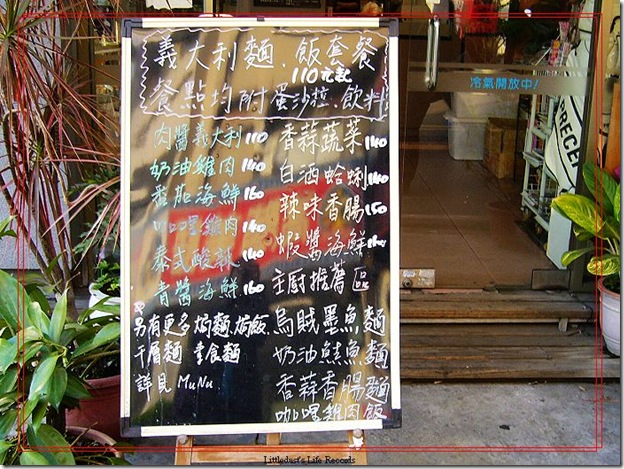 義大利麵．飯套餐
110元起
餐點均附蛋沙拉．飲料
肉醬義大利 110
奶油雞肉 140
番茄海鮮 160
咖哩雞肉 140
泰式酸辣 140
青醬海鮮 160
香蒜蔬菜 140
白酒蛤蜊 140
辣味香腸 150
蝦醬海鮮
主廚推薦
烏賊墨魚麵
奶油鮭魚麵
香蒜香腸麵
咖哩雞肉飯
※
另有更多焗麵．焗飯
千層麵 素食麵
詳見 MuNu
冷氣開放中!
PRECE
Littledust's Life Records